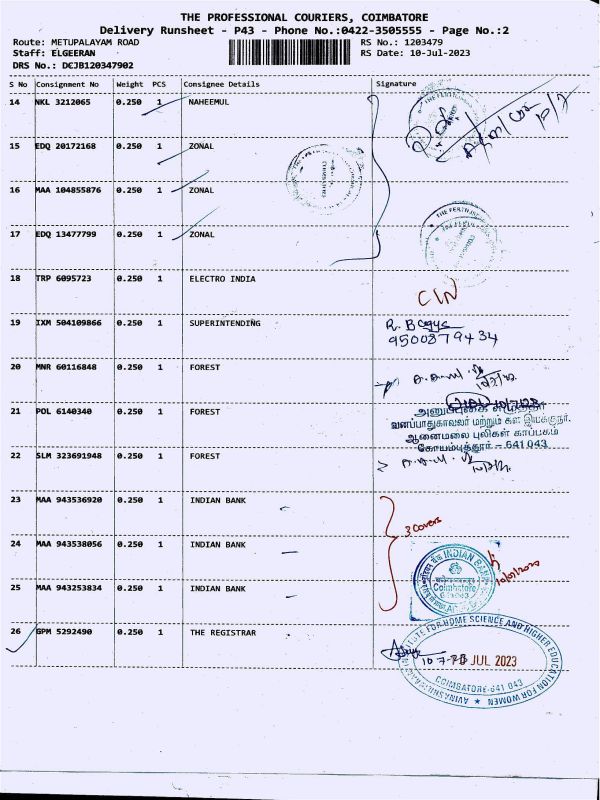 THE PROFESSIONAL COURIERS, COIMBATORE
Delivery Runsheet - P43 - Phone No.:0422-3505555 - Page No.:2
Route: METUPALAYAM ROAD RS No.: 1203479
Staff: ELGEERAN RS Date: 10-Jul-2023
DRS No.: DCJB120347902
S No Consignment No Weight PCS Consignee Details Signature
14 NKL 3212065 0.250 1 NAHEEMUL
15 EDQ 20172168 0.250 1 ZONAL
16 MAA 104855876 0.250 1 ZONAL
17 EDQ 13477799 0.250 1 ZONAL
18 TRP 6095723 0.250 1 ELECTRO INDIA
19 IXM 504109866 0.250 1 SUPERINTENDING
9500879434
20 MNR 60116848 0.250 1 FOREST
21 POL 6140340 0.250 1 FOREST
வனப்பாதுகாவலர் மற்றும் கள இயக்குநர்
ஆனைமலை புலிகள் காப்பகம்
கோயம்புத்தூர் - 641 043
22 SLM 323691948 0.250 1 FOREST
23 MAA 943536920 0.250 1 INDIAN BANK
3 covers
24 MAA 943538056 0.250 1 INDIAN BANK
INDIAN BANK
Coimbatore
25 MAA 943253834 0.250 1 INDIAN BANK
26 GPM 5292490 0.250 1 THE REGISTRAR
INSTITUTE FOR HOME SCIENCE AND HIGHER EDUCATION FOR WOMEN
JUL 2023
COIMBATORE-641 043